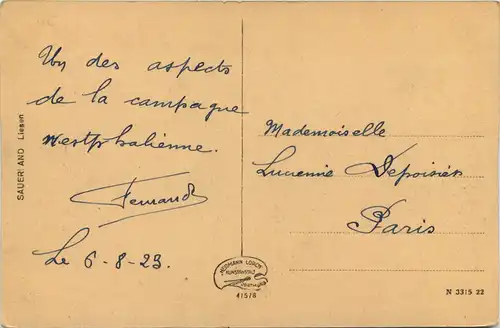 Un des aspects
de la campagne
westphalienne.
Fernand
Le 6-8-23.
SAUERLAND Liesen
Mademoiselle
Lucienne Depoisier
Paris
HERMANN LORCH
KUNSTANSTALT
DORTMUND
41578
N 3315 22